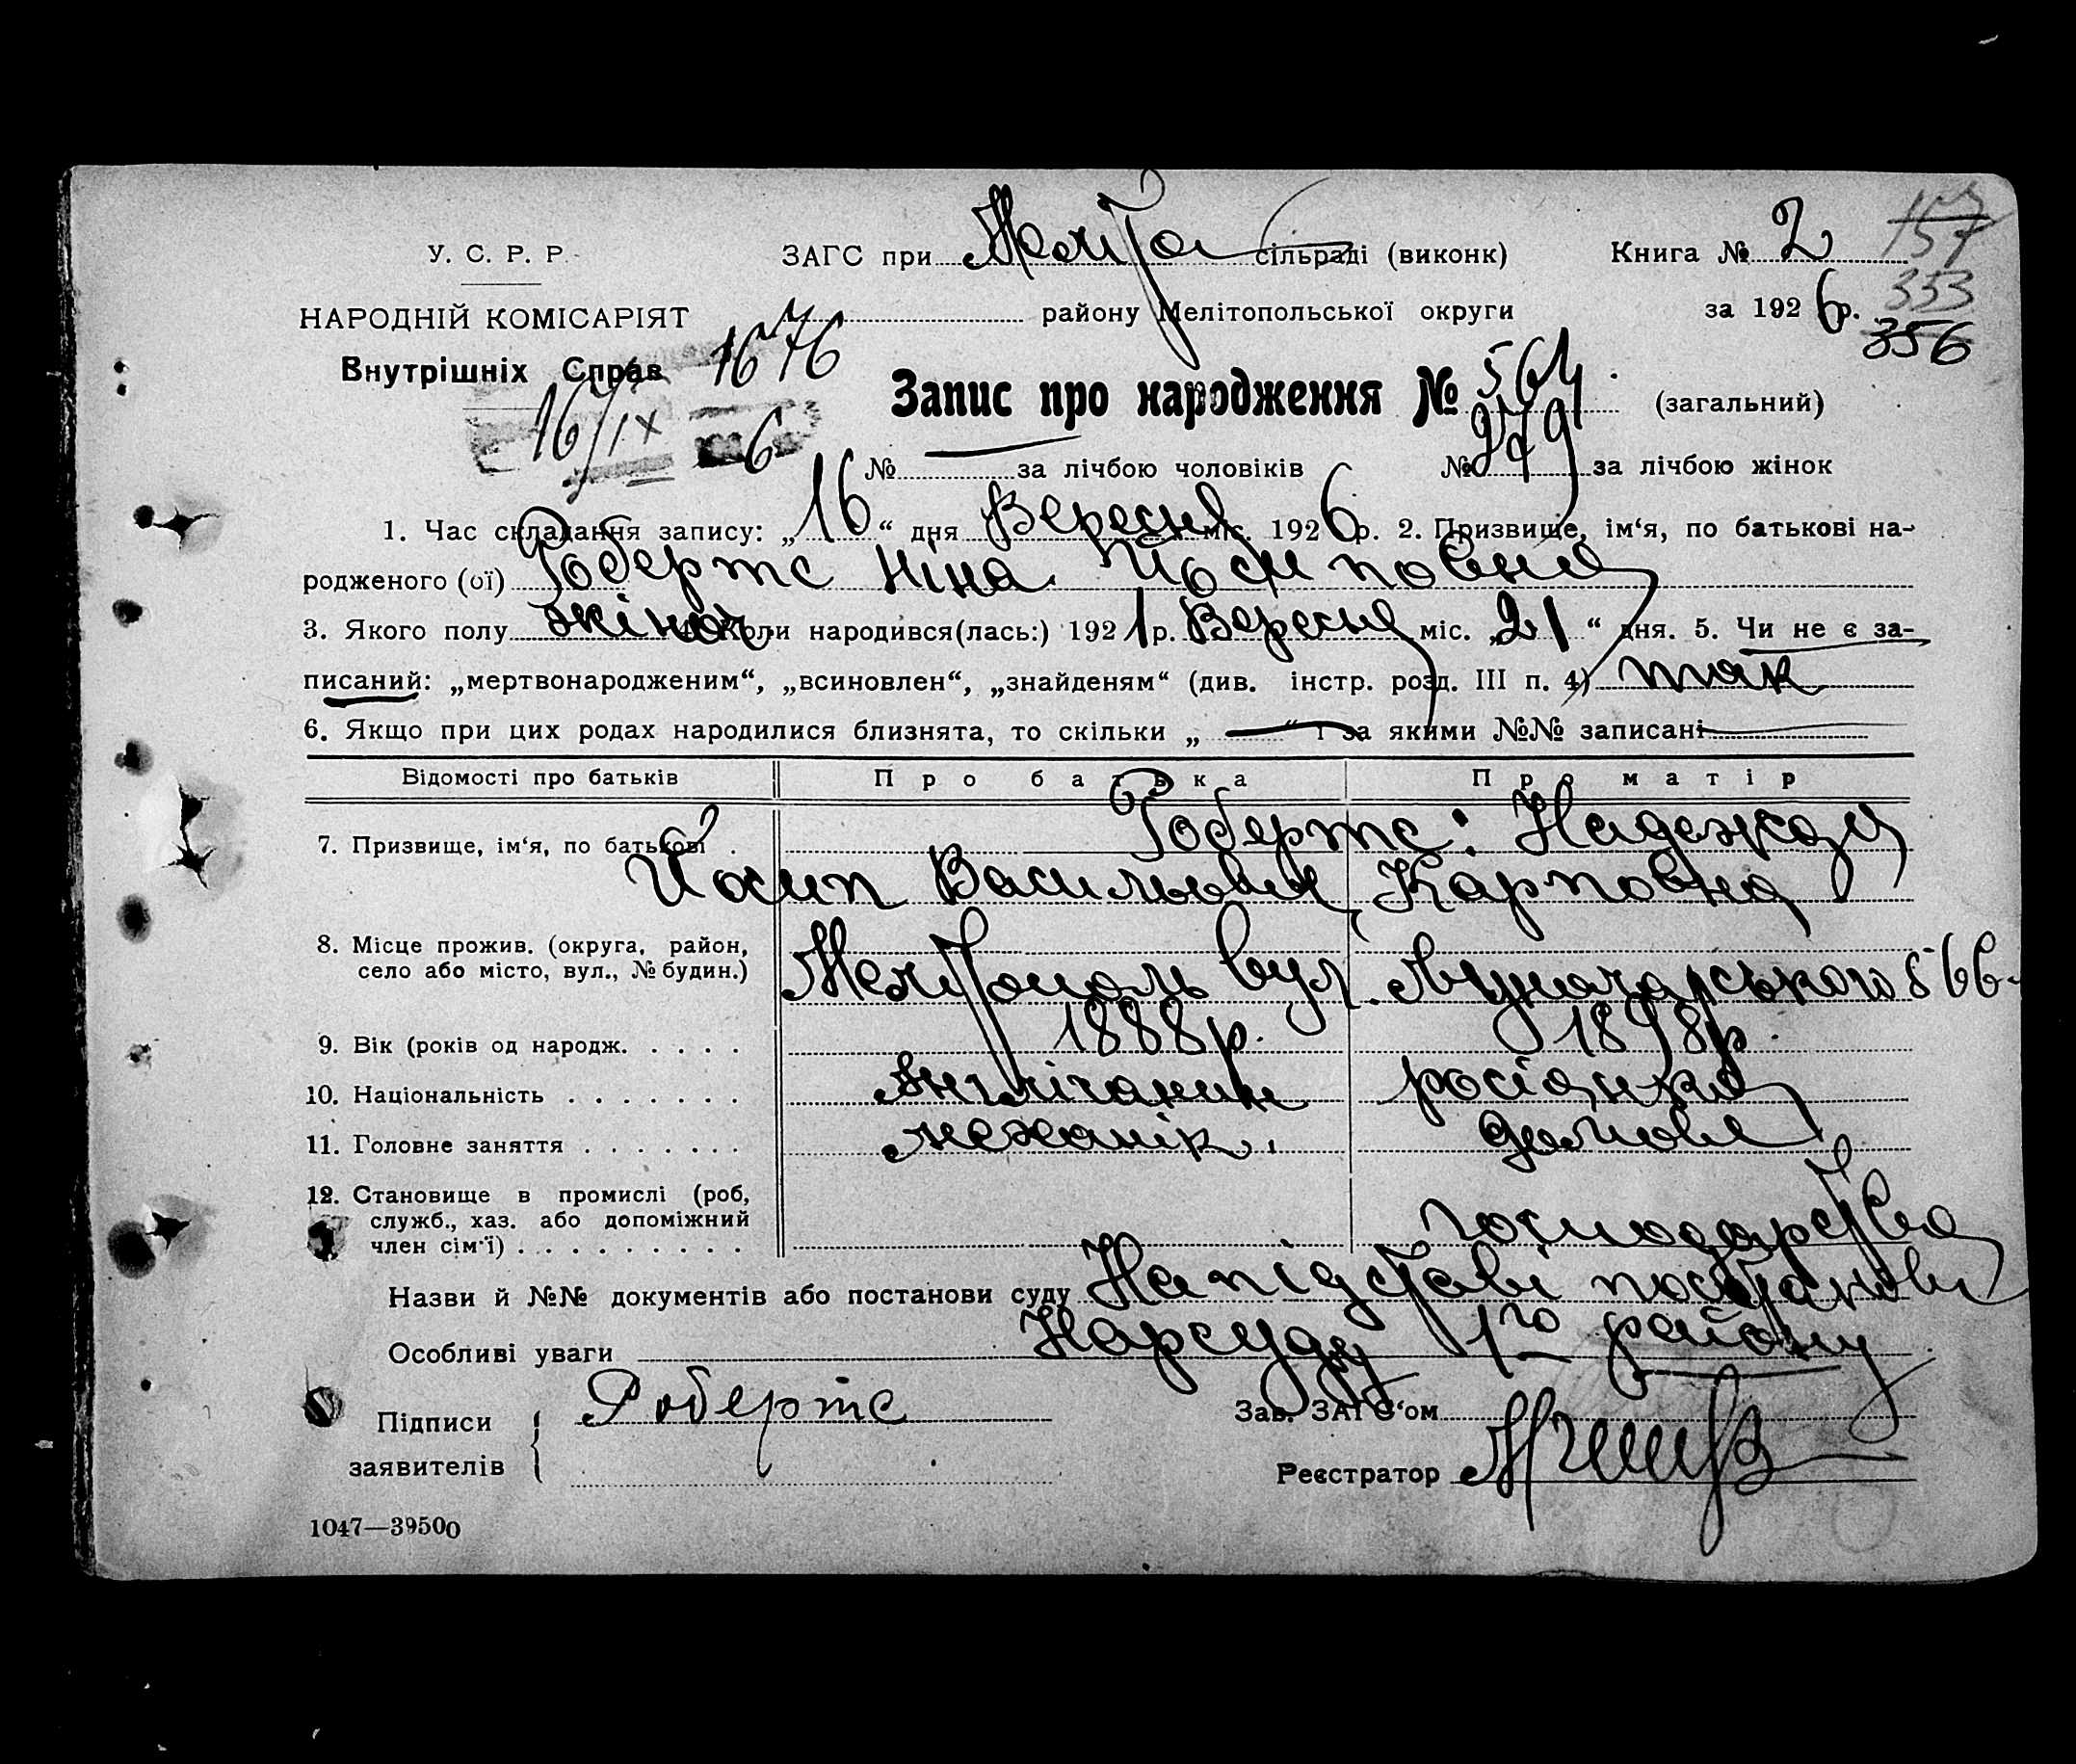 У. С. Р. Р.
ЗАГС при сільраді (виконк)
Книга № 2
157
НАРОДНІЙ КОМІСАРІЯТ
району Мелітопольської округи
за 1926 р.
353
356
Внутрішніх Справ
1676
16/IX 6
Запис про народження № 564 (загальний)
№ — за лічбою чоловіків № 279 за лічбою жінок
1. Час складання запису: „16“ дня Вересня міс. 1926 р. 2. Призвище, ім‘я, по батькові на-
родженого (ої) Робертс Ніна Йосиповна
3. Якого полу жіноч. 4. Коли народився(лась:) 1921 р. Вересня міс. „21“ дня. 5. Чи не є за-
писаний: „мертвонародженим“, „всиновлен“, „знайденям“ (див. інстр. розд. III п. 4) так
6. Якщо при цих родах народилися близнята, то скільки „ — “ і за якими №№ записані —
Відомості про батьків Про батька Про матір
7. Призвище, ім‘я, по батькові . Робертс: Надежда
Йосип Васильович Карповна
8. Місце прожив. (округа, район,
село або місто, вул., № будин.)
Мелітополь вул. Луначарського 66
9. Вік (років од народж. . . . . 1888 р. 1898 р.
10. Національність . . . . . . . Англічанин росіянка
11. Головне заняття . . . . . . . механік домове
12. Становище в промислі (роб,
служб., хаз. або допоміжний
член сім‘ї) . . . . . . . . . господарства
Назви й №№ документів або постанови суду На підставі постанови
Особливі уваги Нарсуду 1го району
Підписи
заявителів
Робертс
Зав. ЗАГС‘ом
Реєстратор
1047—39500